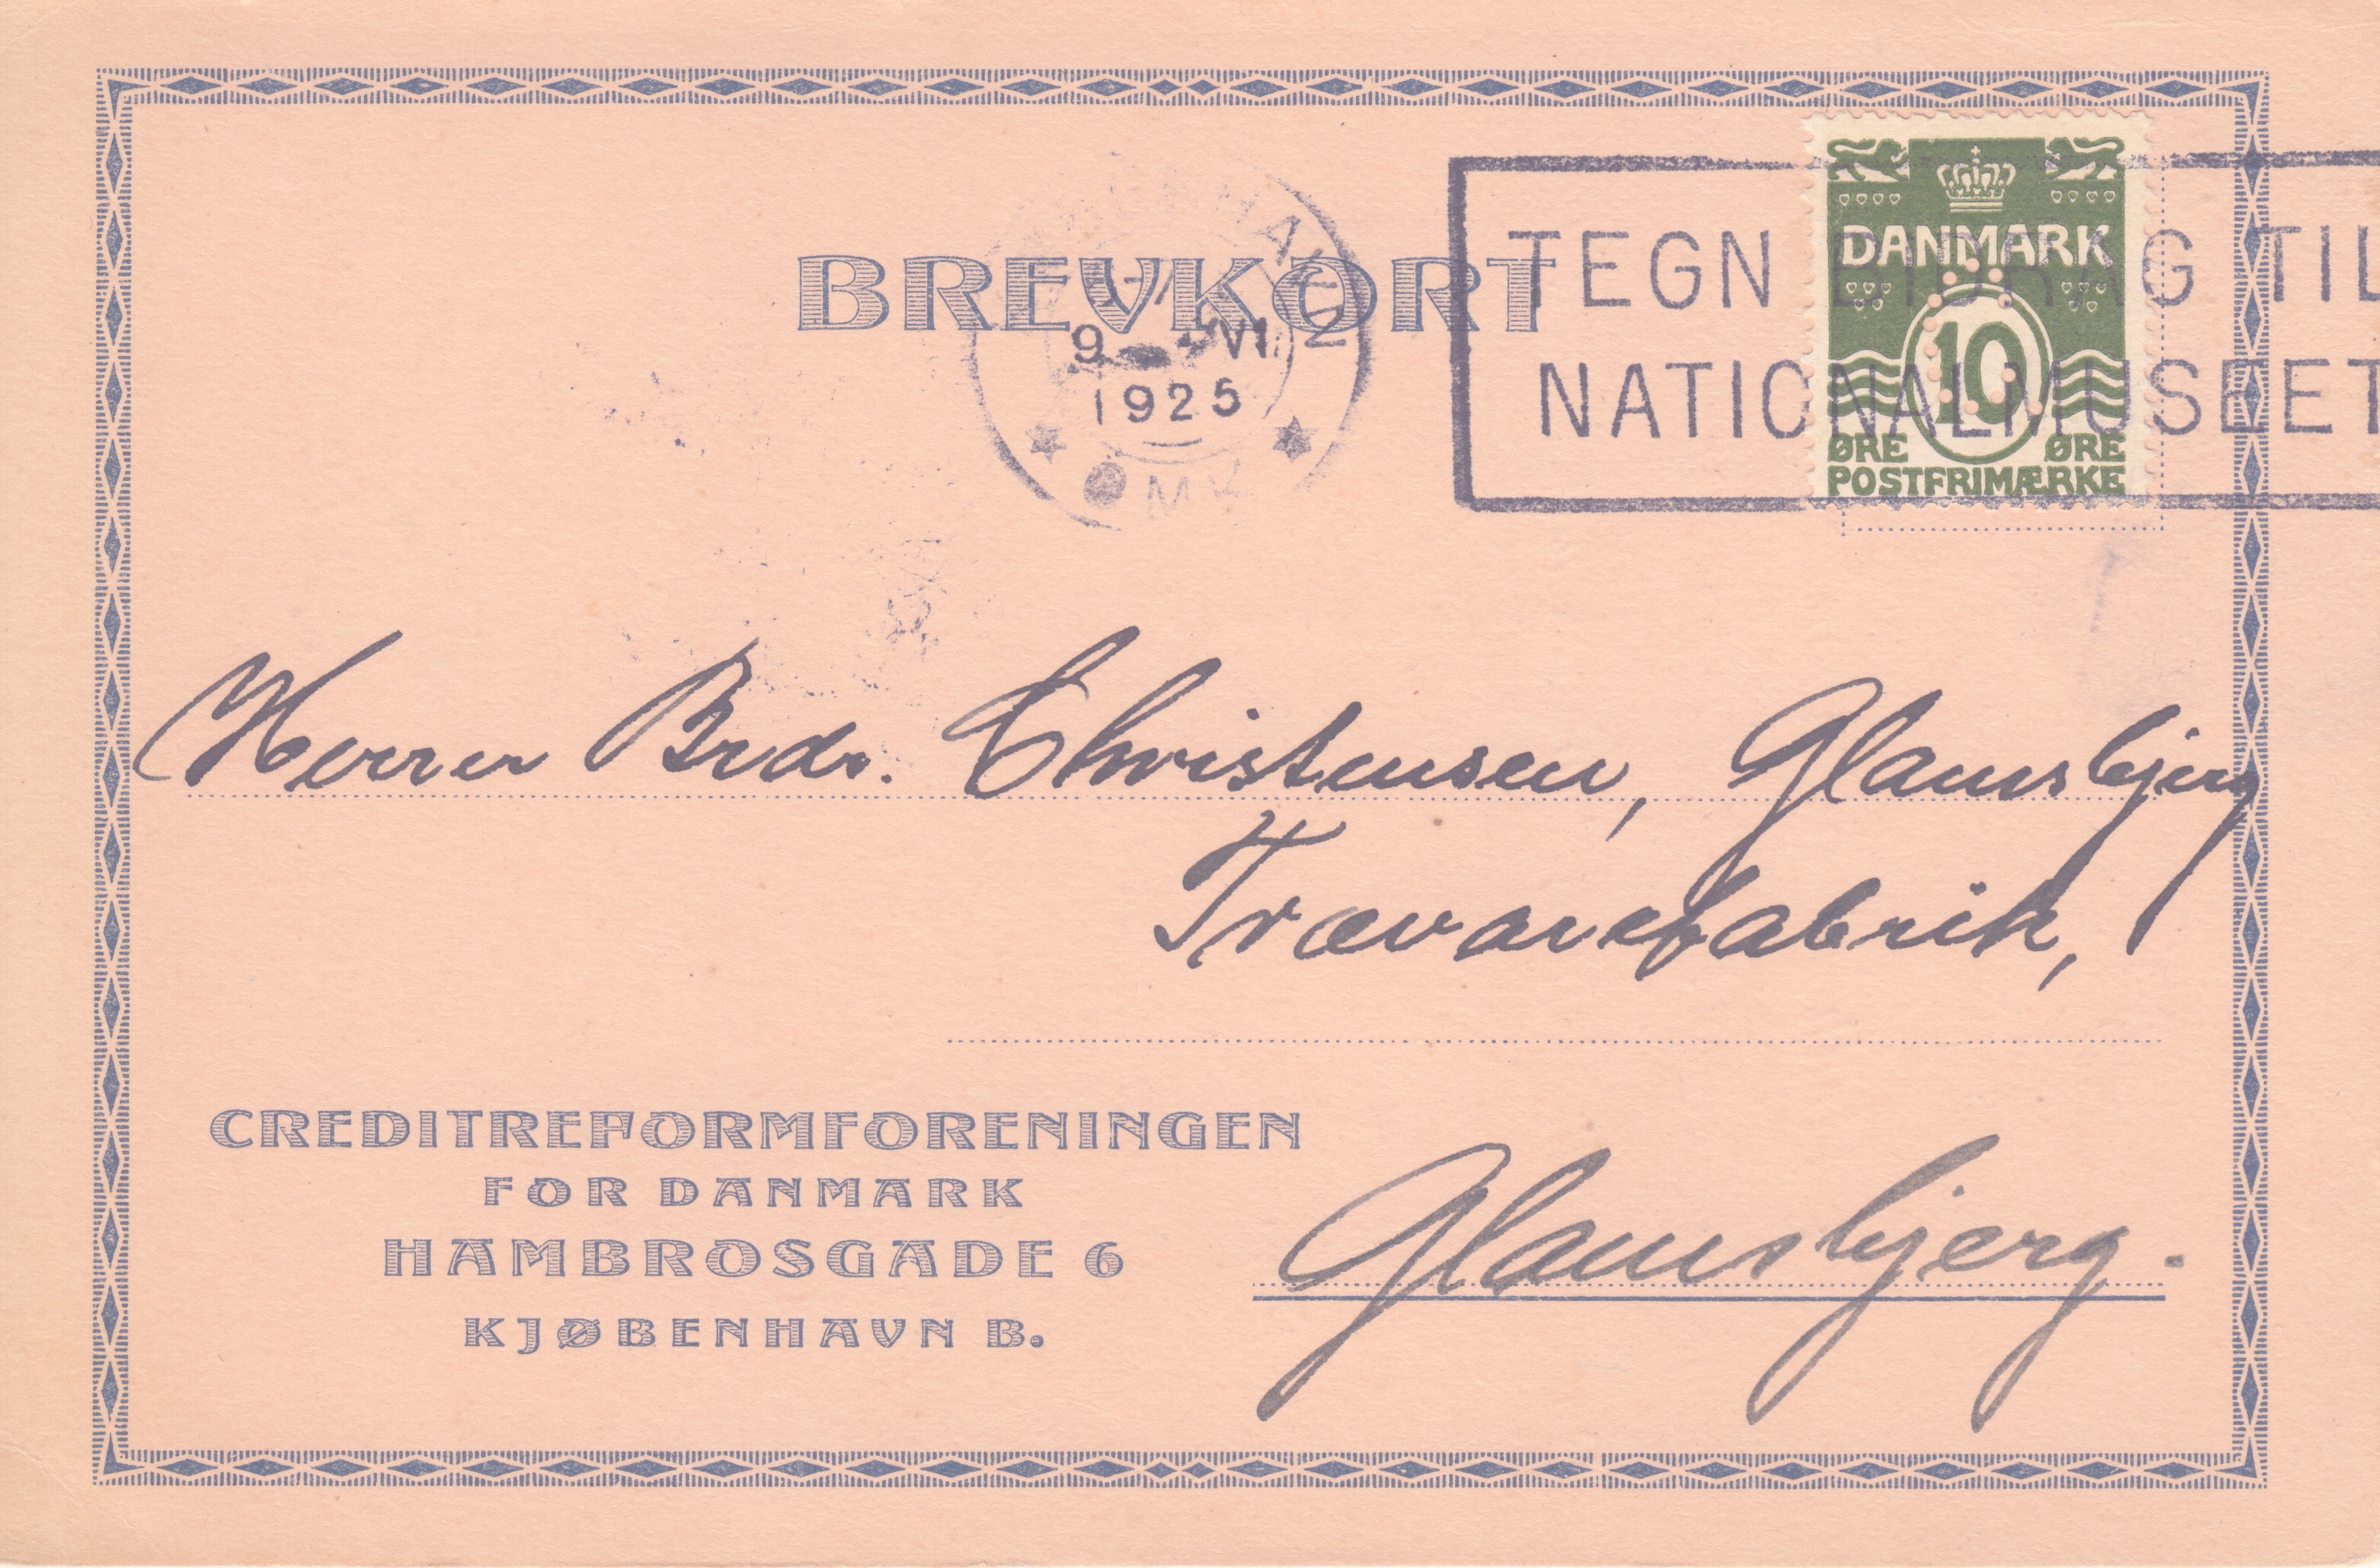 BREVKORT
9 VI
1925
TEGN BIDRAG TIL
NATIONALMUSEET
DANMARK
10
ØRE ØRE
POSTFRIMÆRKE
Herrer Brdr. Christensen, Glamsbjerg
Trævarefabrik,
CREDITREFORMFORENINGEN
FOR DANMARK
HAMBROSGADE 6
KJØBENHAVN B.
Glamsbjerg.